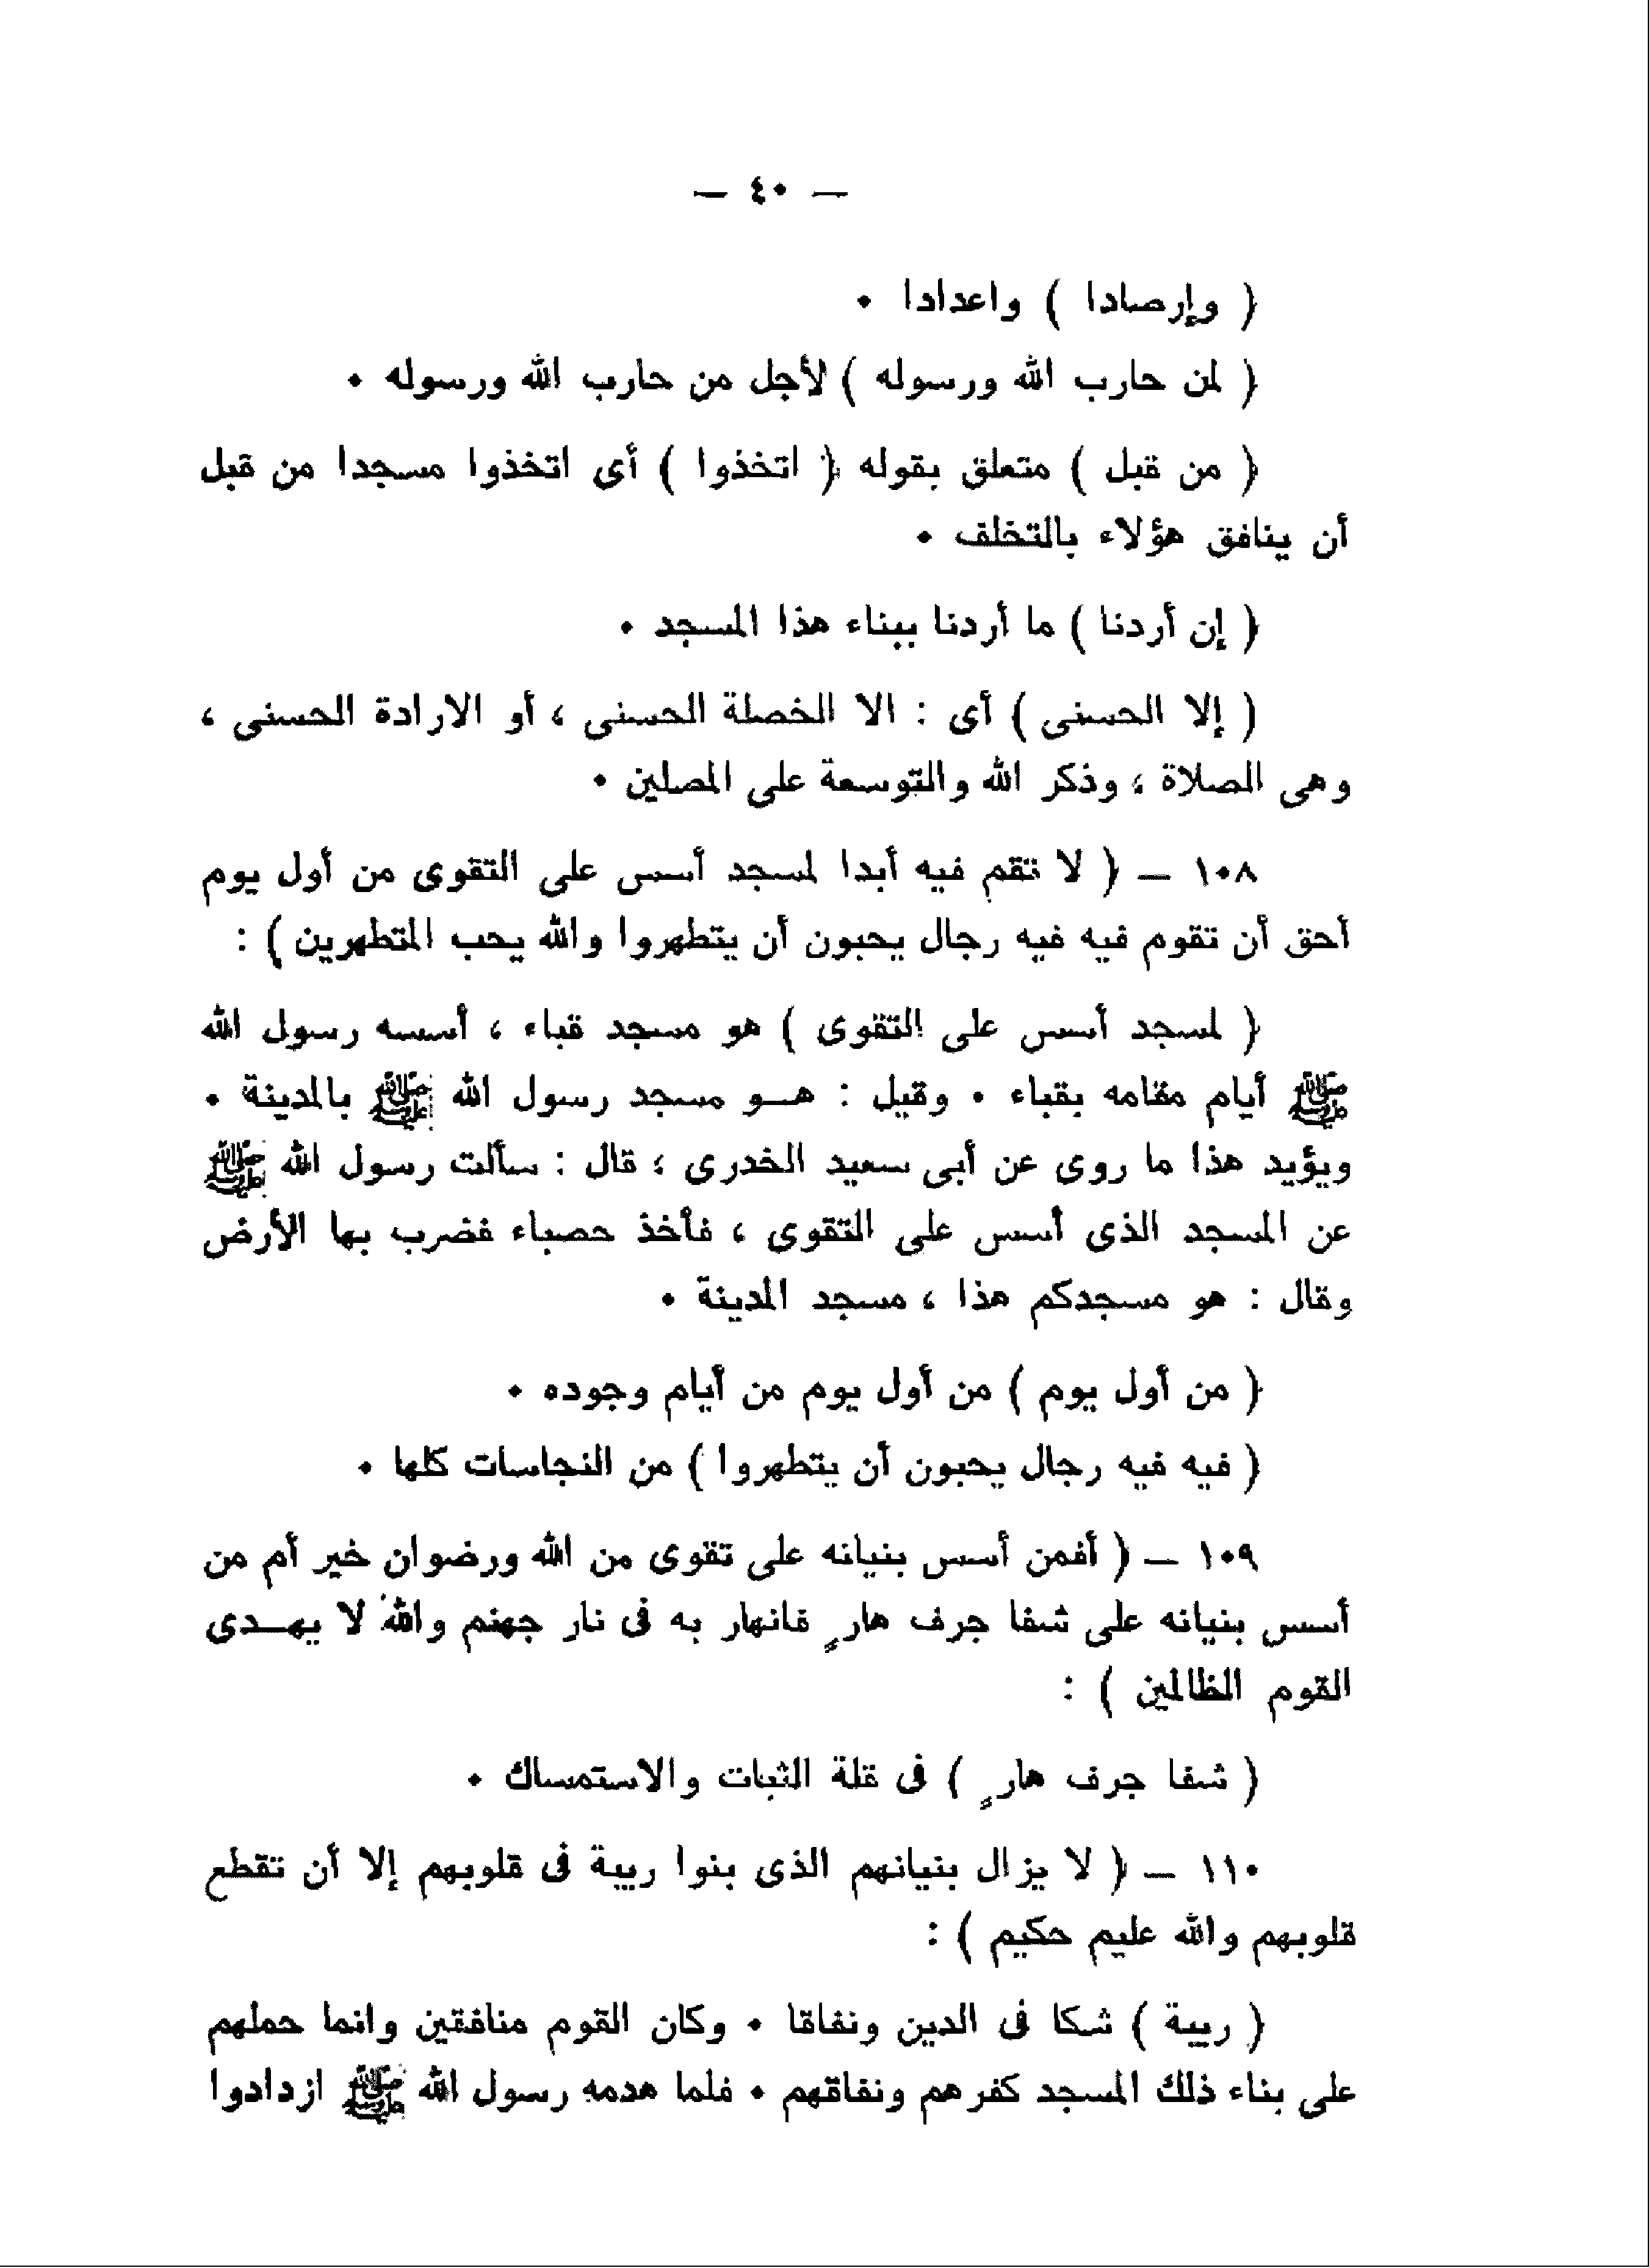 — ٤٠ —
( وإرصادا ) واعدادا ٠
( لمن حارب الله ورسوله ) لأجل من حارب الله ورسوله ٠
( من قبل ) متعلق بقوله ( اتخذوا ) أى اتخذوا مسجدا من قبل
أن ينافق هؤلاء بالتخلف ٠
( إن أردنا ) ما أردنا ببناء هذا المسجد ٠
( إلا الحسنى ) أى : الا الخصلة الحسنى ، أو الارادة الحسنى ،
وهى الصلاة ، وذكر الله والتوسعة على المصلين ٠
١٠٨ — ( لا تقم فيه أبدا لمسجد أسس على التقوى من أول يوم
أحق أن تقوم فيه فيه رجال يحبون أن يتطهروا والله يحب المتطهرين ) :
( لمسجد أسس على التقوى ) هو مسجد قباء ، أسسه رسول الله
ﷺ أيام مقامه بقباء ٠ وقيل : هـو مسجد رسول الله ﷺ بالمدينة ٠
ويؤيد هذا ما روى عن أبى سعيد الخدرى ، قال : سألت رسول الله ﷺ
عن المسجد الذى أسس على التقوى ، فأخذ حصباء فضرب بها الأرض
وقال : هو مسجدكم هذا ، مسجد المدينة ٠
( من أول يوم ) من أول يوم من أيام وجوده ٠
( فيه فيه رجال يحبون أن يتطهروا ) من النجاسات كلها ٠
١٠٩ — ( أفمن أسس بنيانه على تقوى من الله ورضوان خير أم من
أسس بنيانه على شفا جرف هارٍ فانهار به فى نار جهنم والله لا يهـدى
القوم الظالمين ) :
( شفا جرف هارٍ ) فى قلة الثبات والاستمساك ٠
١١٠ — ( لا يزال بنيانهم الذى بنوا ريبة فى قلوبهم إلا أن تقطع
قلوبهم والله عليم حكيم ) :
( ريبة ) شكا فى الدين ونفاقا ٠ وكان القوم منافقين وانما حملهم
على بناء ذلك المسجد كفرهم ونفاقهم ٠ فلما هدمه رسول الله ﷺ ازدادوا